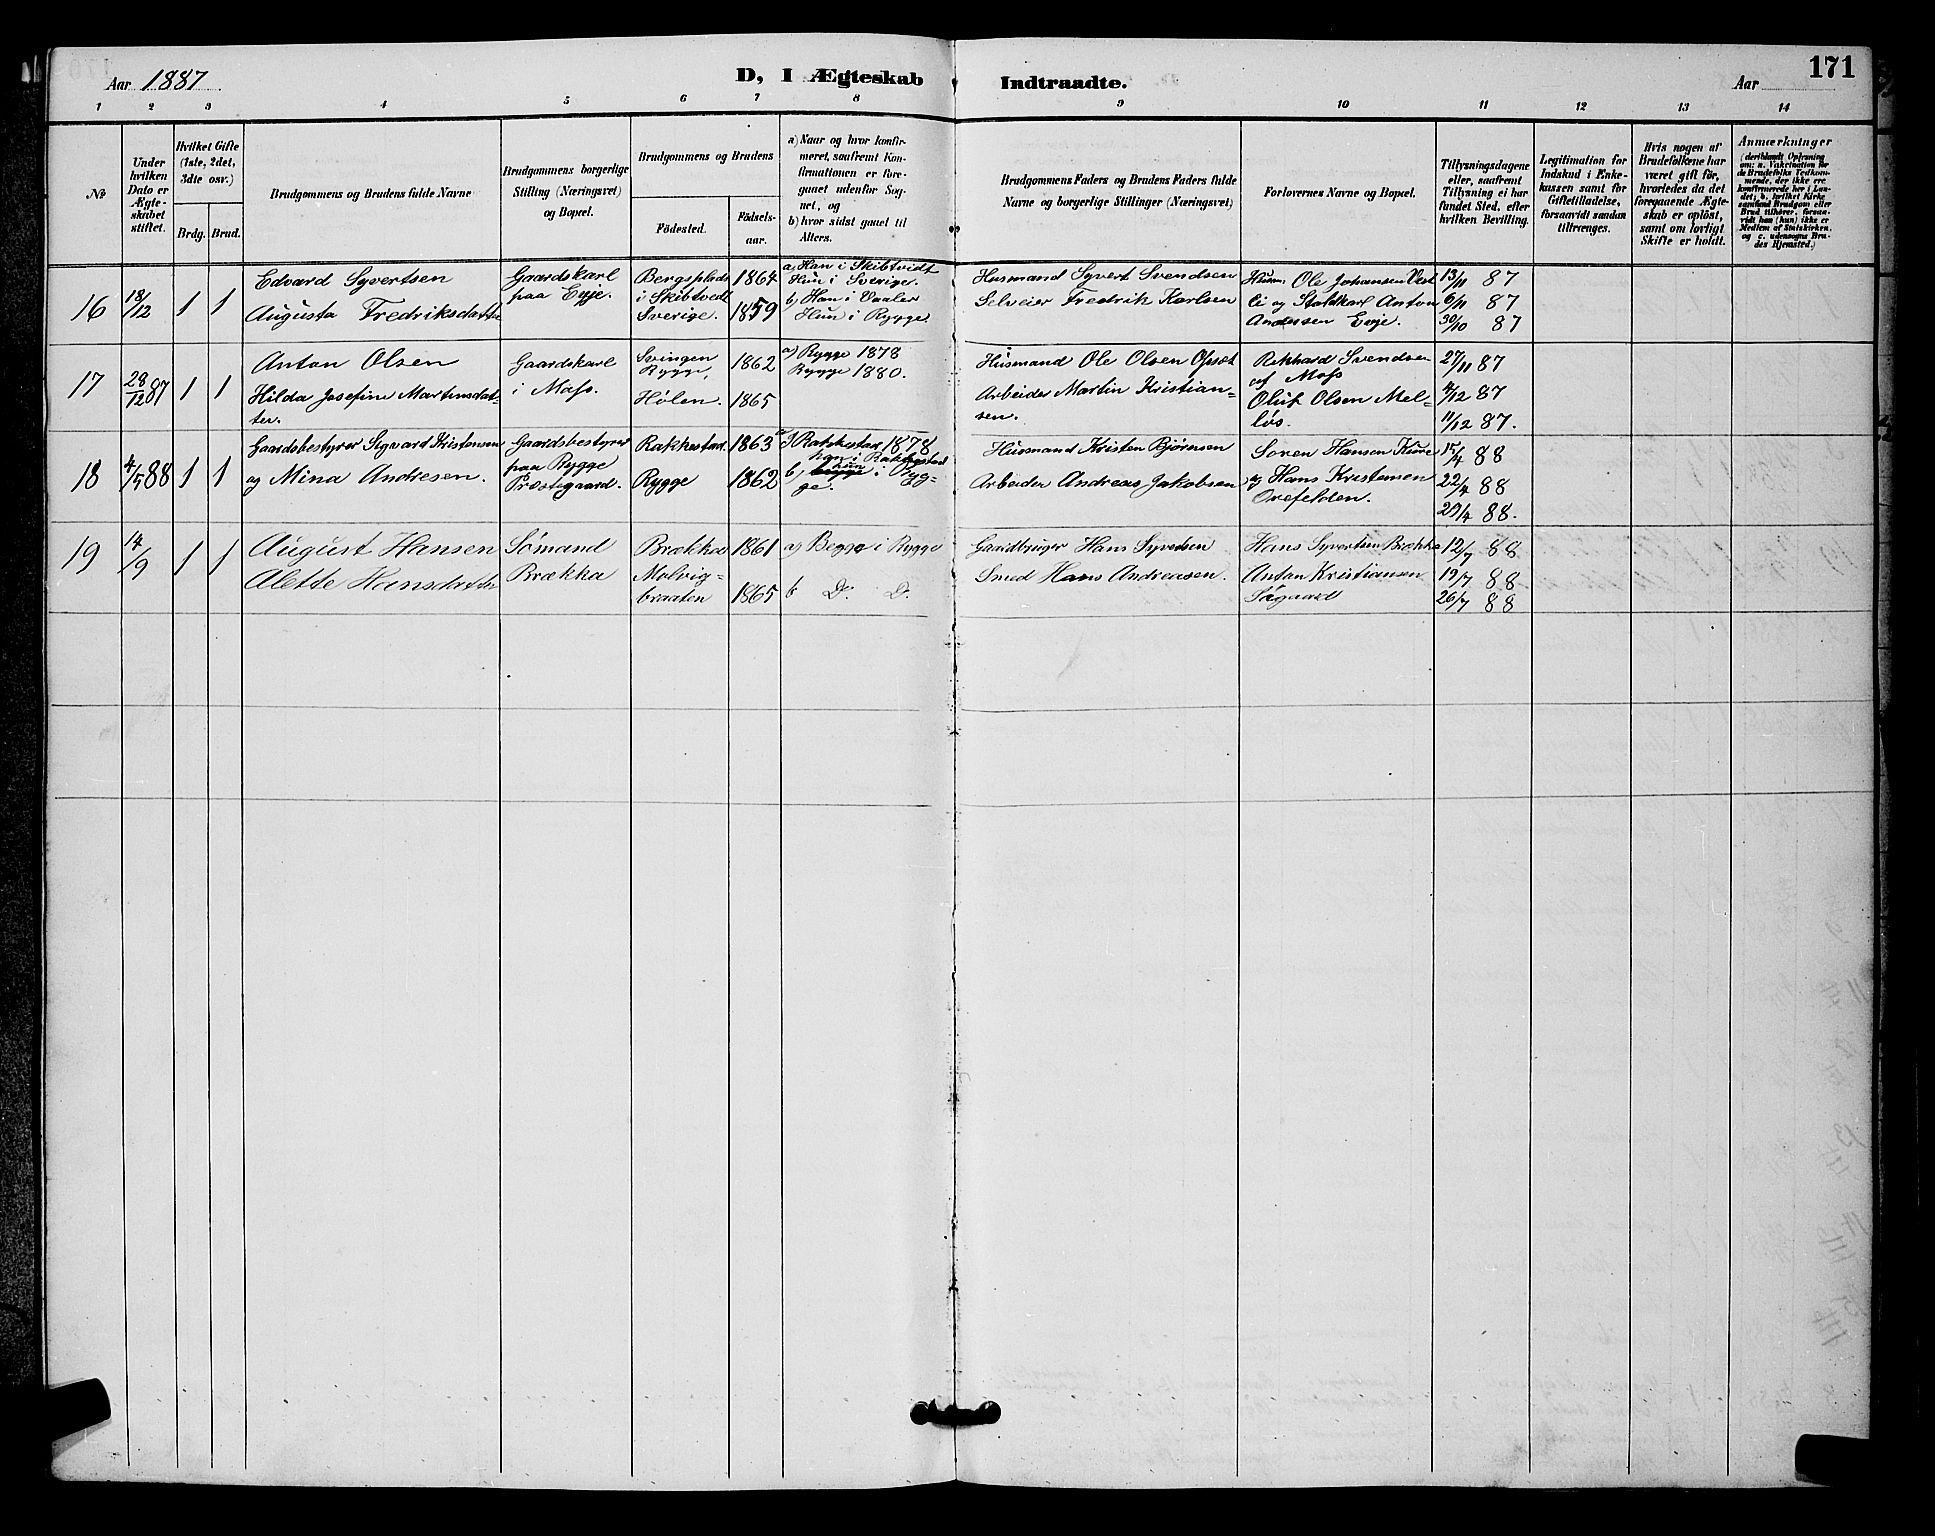 171
Aar 1887
D, I Ægteskab
Indtraadte.
Aar
1 2 3 4 5 6 7 8 9 10 11 12 13 14
№
Under hvilken Dato er Ægteskabet stiftet.
Hvilket Gifte (1ste, 2det, 3die osv.)
Brdg. Brud.
Brudgommens og Brudens fulde Navne
Brudgommens borgerlige
Stilling (Næringsvei)
og Bopæl.
Brudgommens og Brudens
Födested.
Födsels-
aar.
a) Naar og hvor konfir-
meret, saafremt Kon-
firmationen er fore-
gaaet udenfor Sog-
net, og
b) hvor sidst gaaet til
Alters.
Brudgommens Faders og Brudens Faders fulde
Navne og borgerlige Stillinger (Næringsvei)
Forlovernes Navne og Bopæl.
Tillysningsdagene
eller, saafremt
Tillysning ei har
fundet Sted, efter
hvilken Bevilling.
Legitimation for
Indskud i Enke-
kassen samt for
Giftetilladelse,
forsaavidt saadan
tiltrænges.
Hvis nogen af
Brudefolkene har
været gift för,
hvorledes da det
foregaaende Ægte-
skab er oplöst,
samt om lovligt
Skifte er holdt.
Anmærkninger
(deriblandt Oplysning
om: a. Vakcination for
de Brudefolks Vedkom-
mende, der ikke ere
konfirmerede her i Lan-
det; b. hvilket Kirke-
samfund Brudgom eller
Brud tilhörer, forsaa-
vidt han (hun) ikke er
Medlem af Statskirken,
og c. udensogns Bru-
des Hjemsted.)
16 18/12 1 1
Edvard Syvertsen
Augusta Fredriksdatter
Gaardskarl
paa Evje.
Bergsplads 1864
i Skibtvedt
Sverige. 1859
a) Han i Skibtvidt
Hun i Sverige.
b) Han i Vaaler
Hun i Rygge.
Husmand Syvert Svendsen
Selveier Fredrik Karlsen
Husm. Ole Johansen Vest
li og Staldkarl Anton
Andersen Evje.
13/11 87
6/11 87
30/10 87
17 28/12 87 1 1
Anton Olsen
Hilda Josefine Martinsdat-
ter.
Gaardskarl
i Moss.
Svingen 1862
Rygge,
Hølen. 1865
a) Rygge 1878
Rygge 1880.
Husmand Ole Olsen Opsæt
Arbeider Martin Kristian-
sen.
Rikhard Svendsen
af Moss
Oluf Olsen Mel-
løs.
27/11 87
4/12 87
11/12 87.
18 4/5 88 1 1
Gaardsbestyrer Sigvard Kristensen
og Mina Andresen.
Gaardsbestyrer
paa Rygge
Præstegaard.
Rakkestad 1863
Rygge 1862
a) Rakkestad 1878
han i Rakkestad
b, hun i Ryg-
ge.
Husmand Kristen Bjørnsen
Arbeider Andreas Jakobsen
Soren Hansen Kure
og Hans Kristensen
15/4 88
22/4 88
29/4 88.
19 14/9 1 1
August Hansen
Alette Hansdatter
Sømand
Brækka
Brækka 1861
Molvig-
braaten 1865
a) Begge i Rygge
b D. D.
Gaardbruger Hans Syvertsen
Smed Hans Andreasen.
Hans Syvertsen Brækka
Anton Kristiansen
Søgaard
12/7 88
19/7 88
26/7 88